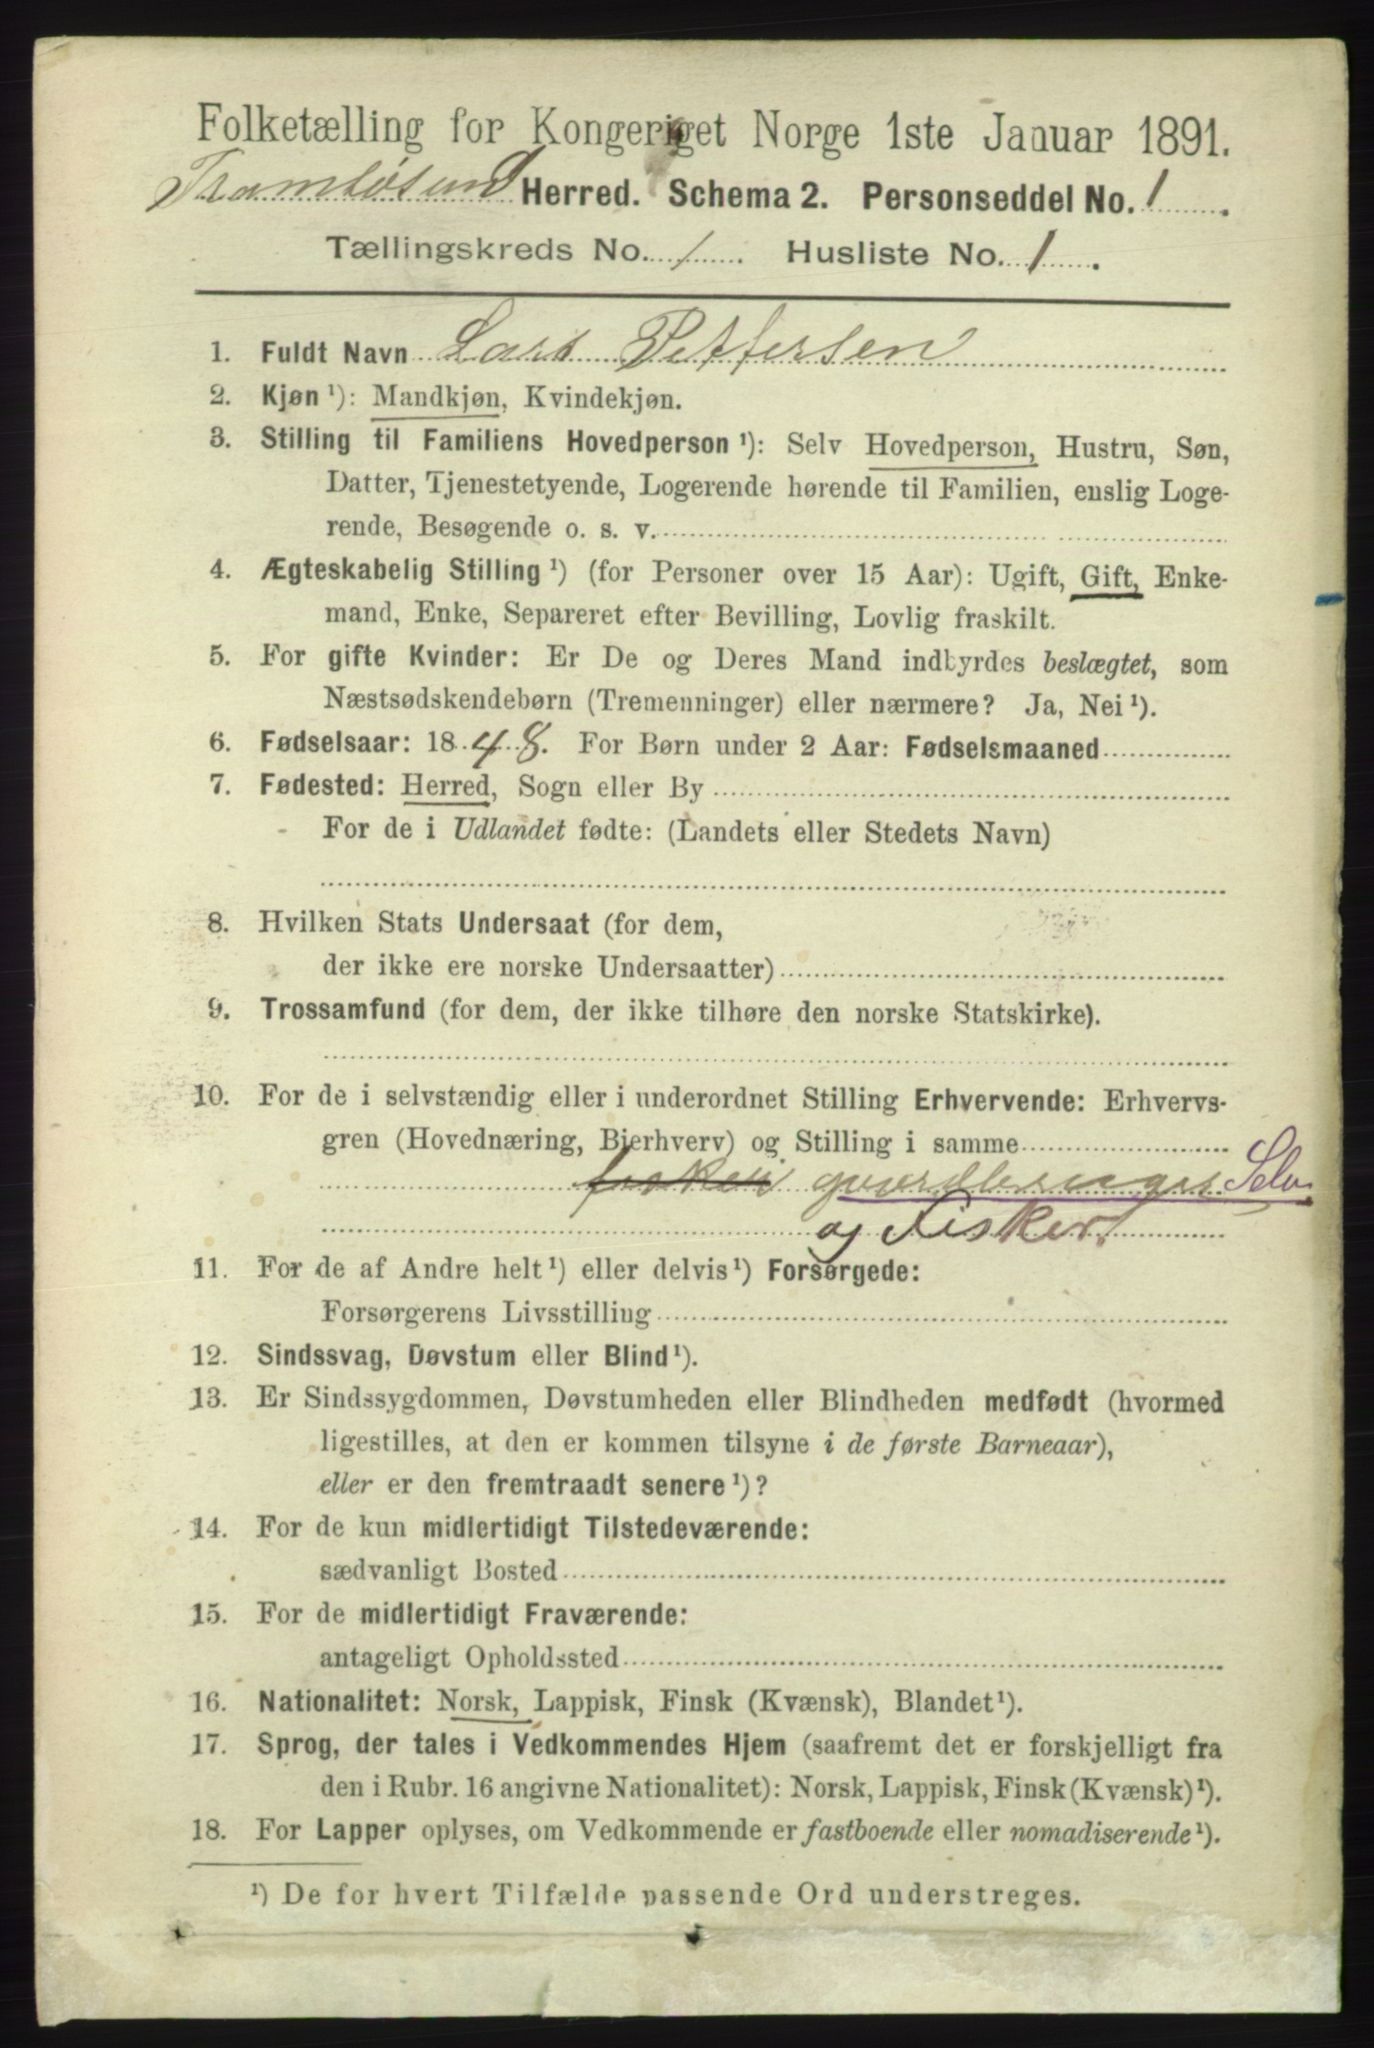 Folketælling for Kongeriget Norge 1ste Januar 1891.
Tromsøsund Herred. Schema 2. Personseddel No. 1
Tællingskreds No. 1. Husliste No. 1.
1. Fuldt Navn Lars Pettersen
2. Kjøn ¹): Mandkjøn, Kvindekjøn.
3. Stilling til Familiens Hovedperson ¹): Selv Hovedperson, Hustru, Søn,
Datter, Tjenestetyende, Logerende hørende til Familien, enslig Loge-
rende, Besøgende o. s. v.
4. Ægteskabelig Stilling ¹) (for Personer over 15 Aar): Ugift, Gift, Enke-
mand, Enke, Separeret efter Bevilling, Lovlig fraskilt.
5. For gifte Kvinder: Er De og Deres Mand indbyrdes beslægtet, som
Næstsødskendebørn (Tremenninger) eller nærmere? Ja, Nei ¹).
6. Fødselsaar: 1848. For Børn under 2 Aar: Fødselsmaaned
7. Fødested: Herred, Sogn eller By
For de i Udlandet fødte: (Landets eller Stedets Navn)
8. Hvilken Stats Undersaat (for dem,
der ikke ere norske Undersaatter)
9. Trossamfund (for dem, der ikke tilhøre den norske Statskirke).
10. For de i selvstændig eller i underordnet Stilling Erhvervende: Erhvervs-
gren (Hovednæring, Bierhverv) og Stilling i samme
Selv
og Fisker.
11. For de af Andre helt ¹) eller delvis ¹) Forsørgede:
Forsørgerens Livsstilling
12. Sindssvag, Døvstum eller Blind ¹).
13. Er Sindssygdommen, Døvstumheden eller Blindheden medfødt (hvormed
ligestilles, at den er kommen tilsyne i de første Barneaar),
eller er den fremtraadt senere ¹)?
14. For de kun midlertidigt Tilstedeværende:
sædvanligt Bosted
15. For de midlertidigt Fraværende:
antageligt Opholdssted
16. Nationalitet: Norsk, Lappisk, Finsk (Kvænsk), Blandet ¹).
17. Sprog, der tales i Vedkommendes Hjem (saafremt det er forskjelligt fra
den i Rubr. 16 angivne Nationalitet): Norsk, Lappisk, Finsk (Kvænsk) ¹).
18. For Lapper oplyses, om Vedkommende er fastboende eller nomadiserende ¹).
¹) De for hvert Tilfælde passende Ord understreges.